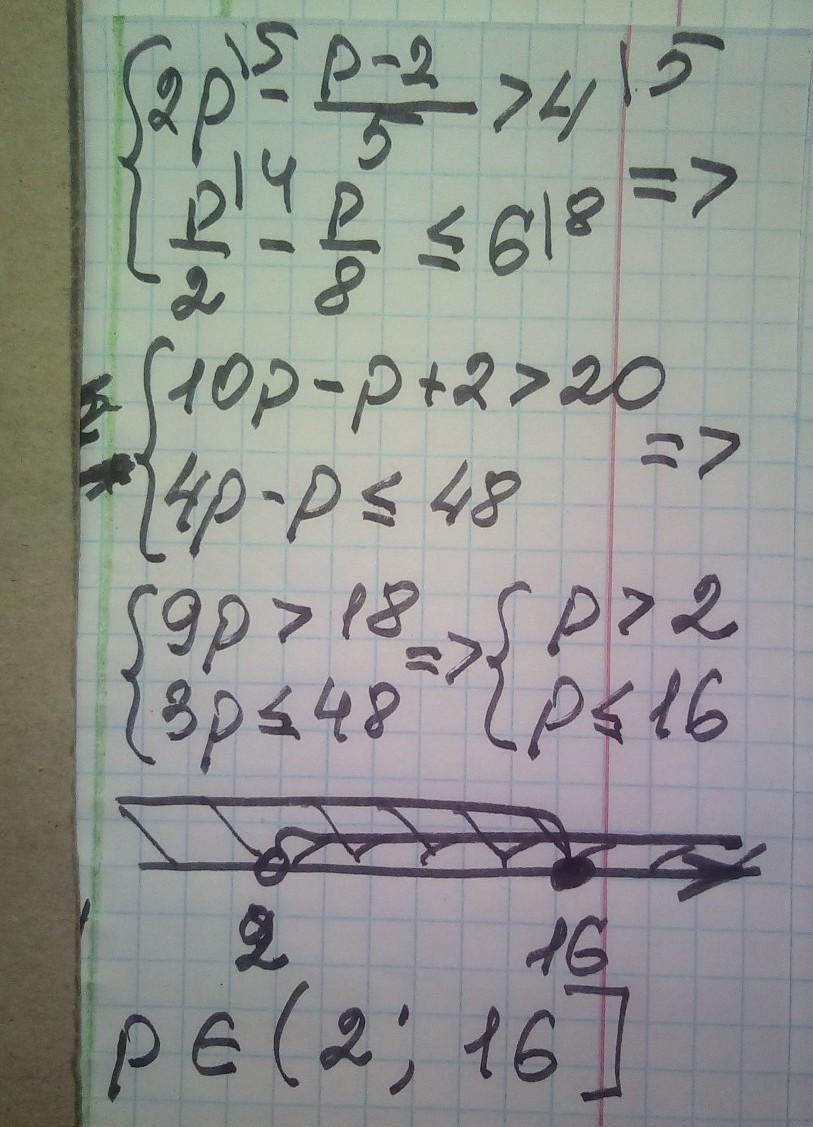 { 2p\5 - (p-2)/5 > 4\5
p/2\4 - p/8 ≤ 6\8 =>
{ 10p - p + 2 > 20
4p - p ≤ 48 =>
{ 9p > 18 => { p > 2
3p ≤ 48 p ≤ 16
2 16
p ∈ (2; 16]